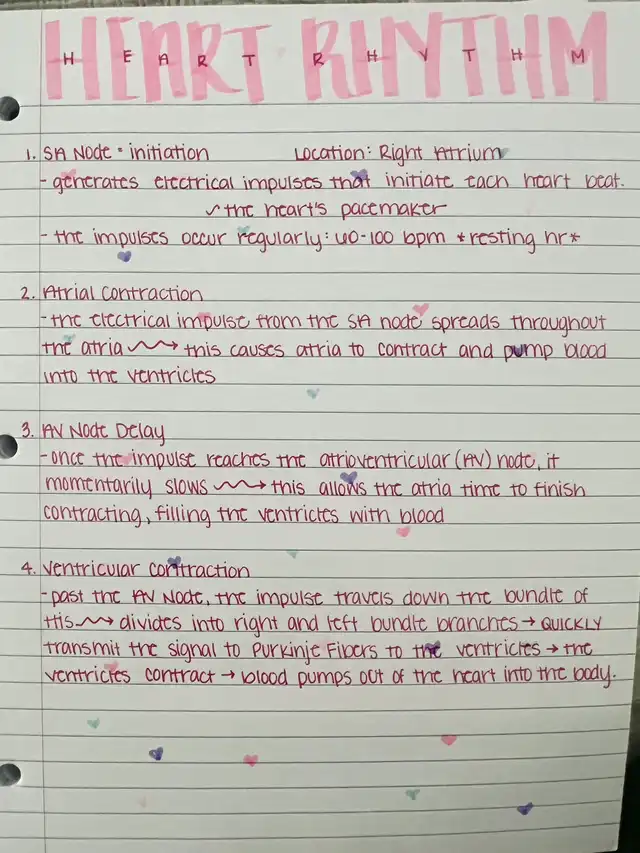 HEART RHYTHM
HEART RHYTHM
1. SA Node = initiation Location: Right Atrium
- generates electrical impulses that initiate each heart beat.
the heart's pacemaker
- the impulses occur regularly: 60-100 bpm *resting hr*
2. Atrial Contraction
- the electrical impulse from the SA node spreads throughout
the atria → this causes atria to contract and pump blood
into the ventricles
3. AV Node Delay
- once the impulse reaches the atrioventricular (AV) node, it
momentarily slows → this allows the atria time to finish
contracting, filling the ventricles with blood
4. Ventricular Contraction
- past the AV Node, the impulse travels down the bundle of
His → divides into right and left bundle branches → QUICKLY
transmit the signal to Purkinje Fibers to the ventricles → the
ventricles contract → blood pumps out of the heart into the body.